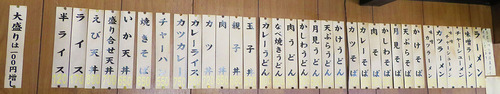 ラーメン
味噌ラーメン
チャーシューメン
カツラーメン
かけそば
月見そば
天ぷらそば
かしわそば
肉そば
カレーそば
カツそば
かけうどん
天ぷらうどん
月見うどん
かしわうどん
肉うどん
なべ焼うどん
カレーうどん
玉子丼
親子丼
肉丼
カツ丼
カレーライス
カツカレー
チャーハン
焼きそば
いか天丼
盛り合せ天丼
えび天丼
ライス
半ライス
大盛りは一〇〇円増し